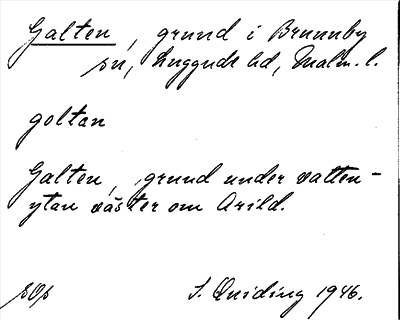 Galten, grund i Brunnby
sn, Luggude hd, Malm. l.
goltan
Galten, grund under vatten-
ytan väster om Arild.
sOs S. Qviding 1946.